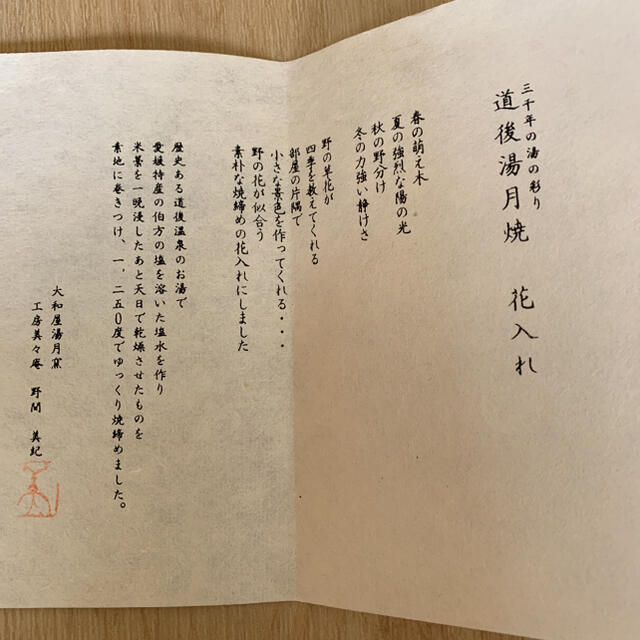 三千年の湯の彩り
道後湯月焼 花入れ
春の萌え木
夏の強烈な陽の光
秋の野分け
冬の力強い静けさ
野の草花が
四季を教えてくれる
部屋の片隅で
小さな景色を作ってくれる・・・
野の花が似合う
素朴な焼締めの花入れにしました
歴史ある道後温泉のお湯で
愛媛特産の伯方の塩を溶いた塩水を作り
米藁を一晩浸したあと天日で乾燥させたものを
素地に巻きつけ、一、二五0度でゆっくり焼締めました。
大和屋湯月窯
工房美々庵 野間 美紀